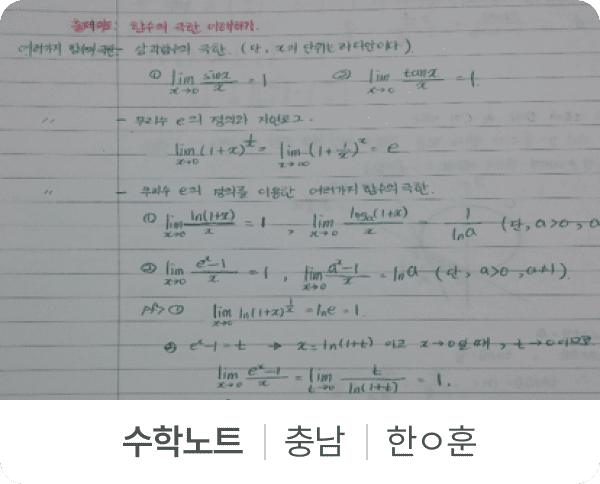 출제의도: 함수의 극한 이해하기.
여러가지 함수의 극한 - 삼각함수의 극한. (단, x의 단위는 라디안이다)
① lim x→0 sinx/x = 1 ② lim x→0 tanx/x = 1.
〃 - 무리수 e의 정의와 자연로그.
lim x→0 (1+x)^(1/x) = lim x→∞ (1+1/x)^x = e
〃 - 무리수 e의 정의를 이용한 여러가지 함수의 극한.
① lim x→0 ln(1+x)/x = 1, lim x→0 logₐ(1+x)/x = 1/lna (단, a>0, a
② lim x→0 (eˣ-1)/x = 1, lim x→0 (aˣ-1)/x = lna (단, a>0, a≠1).
pf> ① lim ln(1+x)^(1/x) = lne = 1.
② eˣ-1=t → x=ln(1+t) 이고 x→0일 때, t→0이므로
lim x→0 (eˣ-1)/x = lim t→0 t/ln(1+t) = 1.
수학노트 | 충남 | 한ㅇ훈